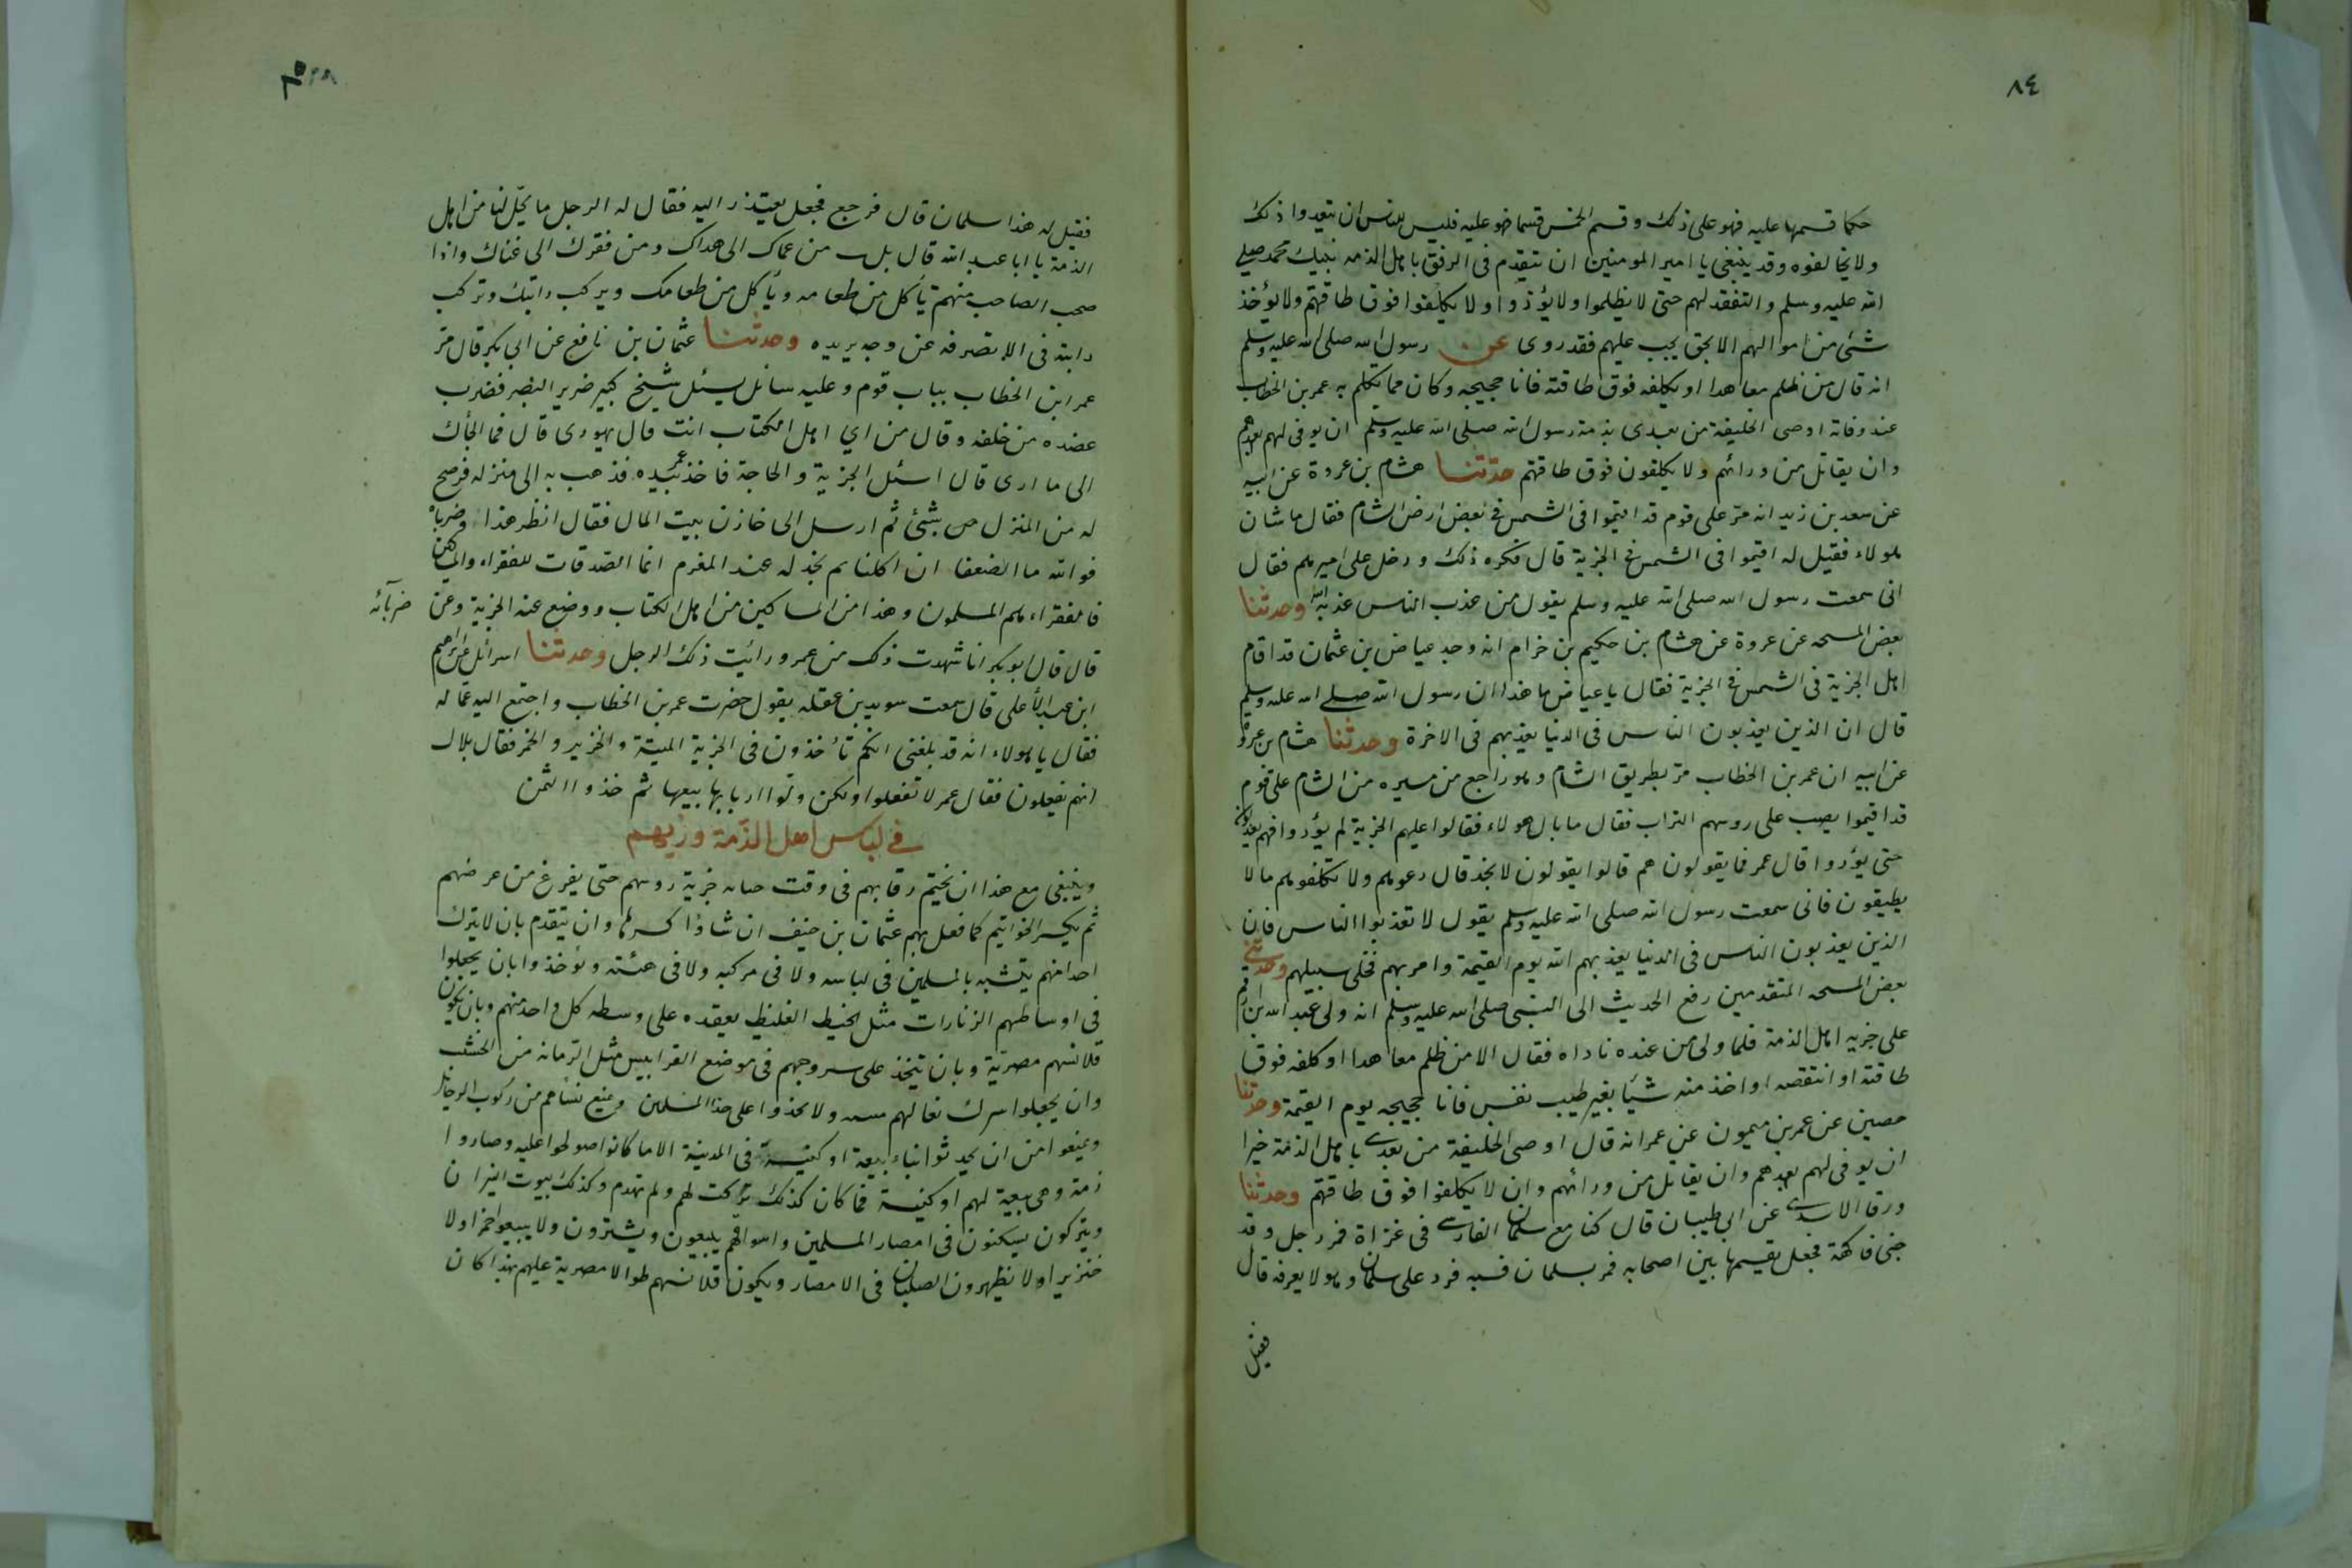 ٨٤
حكما قسمها عليه فهو على ذلك وقسم الخمس قسما ضو عليه فليس للناس ان يتعدوا ذلك
ولا يخالفوه وقد ينبغى يا امير المومنين ان تتقدم فى الرفق باهل الذمه نبيك محمد صلى
الله عليه وسلم والتفقد لهم حتى لا يظلموا ولا يؤذوا ولا يكلفوا فوق طاقتهم ولا يؤخذ
شئ من اموالهم الا بحق يجب عليهم فقد روى عن رسول الله صلى الله عليه وسلم
انه قال من ظلم معاهدا او يكلفه فوق طاقته فانا حجيجه وكان مما يتكلم به عمر بن الخطاب
عند وفاته اوصى الخليفة من بعدى بذمة رسول الله صلى الله عليه وسلم ان يوفى لهم بعهدهم
وان يقاتل من ورائهم ولا يكلفون فوق طاقتهم حدثنا هشام بن عروة عن ابيه
عن سعد بن زيد انه مر على قوم قد اقيموا فى الشمس فى بعض ارض الشام فقال ما شان
هولاء فقيل له اقيموا فى الشمس فى الجزية قال فكره ذلك ودخل على اميرهم فقال
انى سمعت رسول الله صلى الله عليه وسلم يقول من عذب الناس عذبه الله وحدثنا
بعض المسحه عن عروة عن هشام بن حكيم بن خرام انه وجد عياض بن عثمان قد اقام
اهل الجزية فى الشمس فى الجزية فقال يا عياض ما هذا ان رسول الله صلى الله عليه وسلم
قال ان الذين يعذبون الناس فى الدنيا يعذبهم فى الاخرة وحدثنا هشام بن عروة
عن ابيه ان عمر بن الخطاب مر بطريق الشام وهو راجع من مسيره من الشام على قوم
قد اقيموا يصب على روسهم التراب فقال ما بال هولاء فقالوا عليهم الجزية لم يؤدوا فهم يعذبون
حتى يؤدوا قال عمر فما يقولون هم قالوا يقولون لا نجد قال دعوهم ولا تكلفوهم ما لا
يطيقون فانى سمعت رسول الله صلى الله عليه وسلم يقول لا تعذبوا الناس فان
الذين يعذبون الناس فى الدنيا يعذبهم الله يوم القيمة وامر بهم فخلى سبيلهم وحدثنى
بعض المسحه المتقدمين رفع الحديث الى النبى صلى الله عليه وسلم انه ولى عبد الله ابن ارقم
على جزيه اهل الذمة فلما ولى من عنده ناداه فقال الا من ظلم معاهدا او كلفه فوق
طاقته او انتقصه او اخذ منه شيئا بغير طيب نفس فانا حجيجه يوم القيمة وحدثنا
حصين عن عمر بن ميمون عن عمر انه قال اوصى الخليفة من بعدى باهل الذمة خيرا
ان يوفى لهم بعهدهم وان يقاتل من ورائهم وان لا يكلفوا فوق طاقتهم وحدثنا
ورقا الاسدى عن ابى ظبيان قال كنا مع سلمان الفارسى فى غزاة فمر رجل وقد
جنى فاكهة فجعل يقسمها بين اصحابه فمر بسلمان فسبه فرد على سلمان وهو لا يعرفه قال
فقيل
فقيل له هذا سلمان قال فرجع فجعل يعتذر اليه فقال له الرجل ما يحل لنا من اهل
الذمة يا ابا عبد الله قال ثلث من عماك الى هداك ومن فقرك الى غناك واذا
صحب الصاحب منهم تأكل من طعامه ويأكل من طعامك ويركب دابتك وتركب
دابته فى الا تصرفه عن وجه يريده وحدثنا عثمان بن نافع عن ابى بكر قال مر
عمر ابن الخطاب بباب قوم وعليه سائل يسئل شيخ كبير ضرير البصر فضرب
عضده من خلفه وقال من اى اهل الكتاب انت قال يهودى قال فما الجأك
الى ما ارى قال اسئل الجزية والحاجة فاخذ عمر بيده فذهب به الى منزله فرضح
له من المنزل بشئ ثم ارسل الى خازن بيت المال فقال انظر هذا وضرباه
فوالله ما الضعفا ان اكلنا ثم نخذله عند المغرم انما الصدقات للفقراء والمساكين
فالفقراء هم المسلمون وهذا من المساكين من اهل الكتاب ووضع عنه الجزية وعن ضربائه
قال قال ابو بكر انا شهدت ذلك من عمر ورائيت ذلك الرجل وحدثنا اسرائيل عن ابراهيم
ابن عبد الأعلى قال سمعت سويد بن عقله يقول حضرت عمر بن الخطاب واجتمع اليه عماله
فقال يا هولاء انه قد بلغنى انكم تأخذون فى الجزية الميتة والخنزير والخمر فقال بلال
انهم يفعلون فقال عمر لا تفعلوا ولكن ولوا اربابها بيعها ثم خذوا الثمن
فى لباس اهل الذمة وزيهم
وينبغى مع هذا ان تختم رقابهم فى وقت جزية روسهم حتى يفرغ من عرضهم
ثم يكسر الخواتيم كما فعل بهم عثمان بن حنيف ان شاؤا كسرها وان يتقدم بان لا يترك
احد منهم يتشبه بالمسلمين فى لباسه ولا فى مركبه ولا فى هئته ويؤخذوا بان يجعلوا
فى اوساطهم الزنارات مثل الخيط الغليظ يعقده على وسطه كل واحد منهم وبان تكون
قلانسهم مضربة وبان تتخذ على سروجهم فى موضع القرابيس مثل الرمانه من الخشب
وان يجعلوا شرك نعالهم ولا يحذوا على حذا المسلمين وتمنع نسائهم من ركوب الرحائل
ويمنعوا من ان يحدثوا بناء بيعة او كنيسة فى المدينة الا ما كانوا صولحوا عليه وصاروا
ذمة وهى بيعة لهم او كنيسة فما كان كذلك تركت لهم ولم تهدم وكذلك بيوت النيران
ويتركون يسكنون فى امصار المسلمين واسواقهم يبيعون ويشترون ولا يبيعوا خمرا ولا
خنزيرا ولا يظهرون الصلبان فى الامصار ويكون قلانسهم طوالا مضربة عليهم بهذا كان